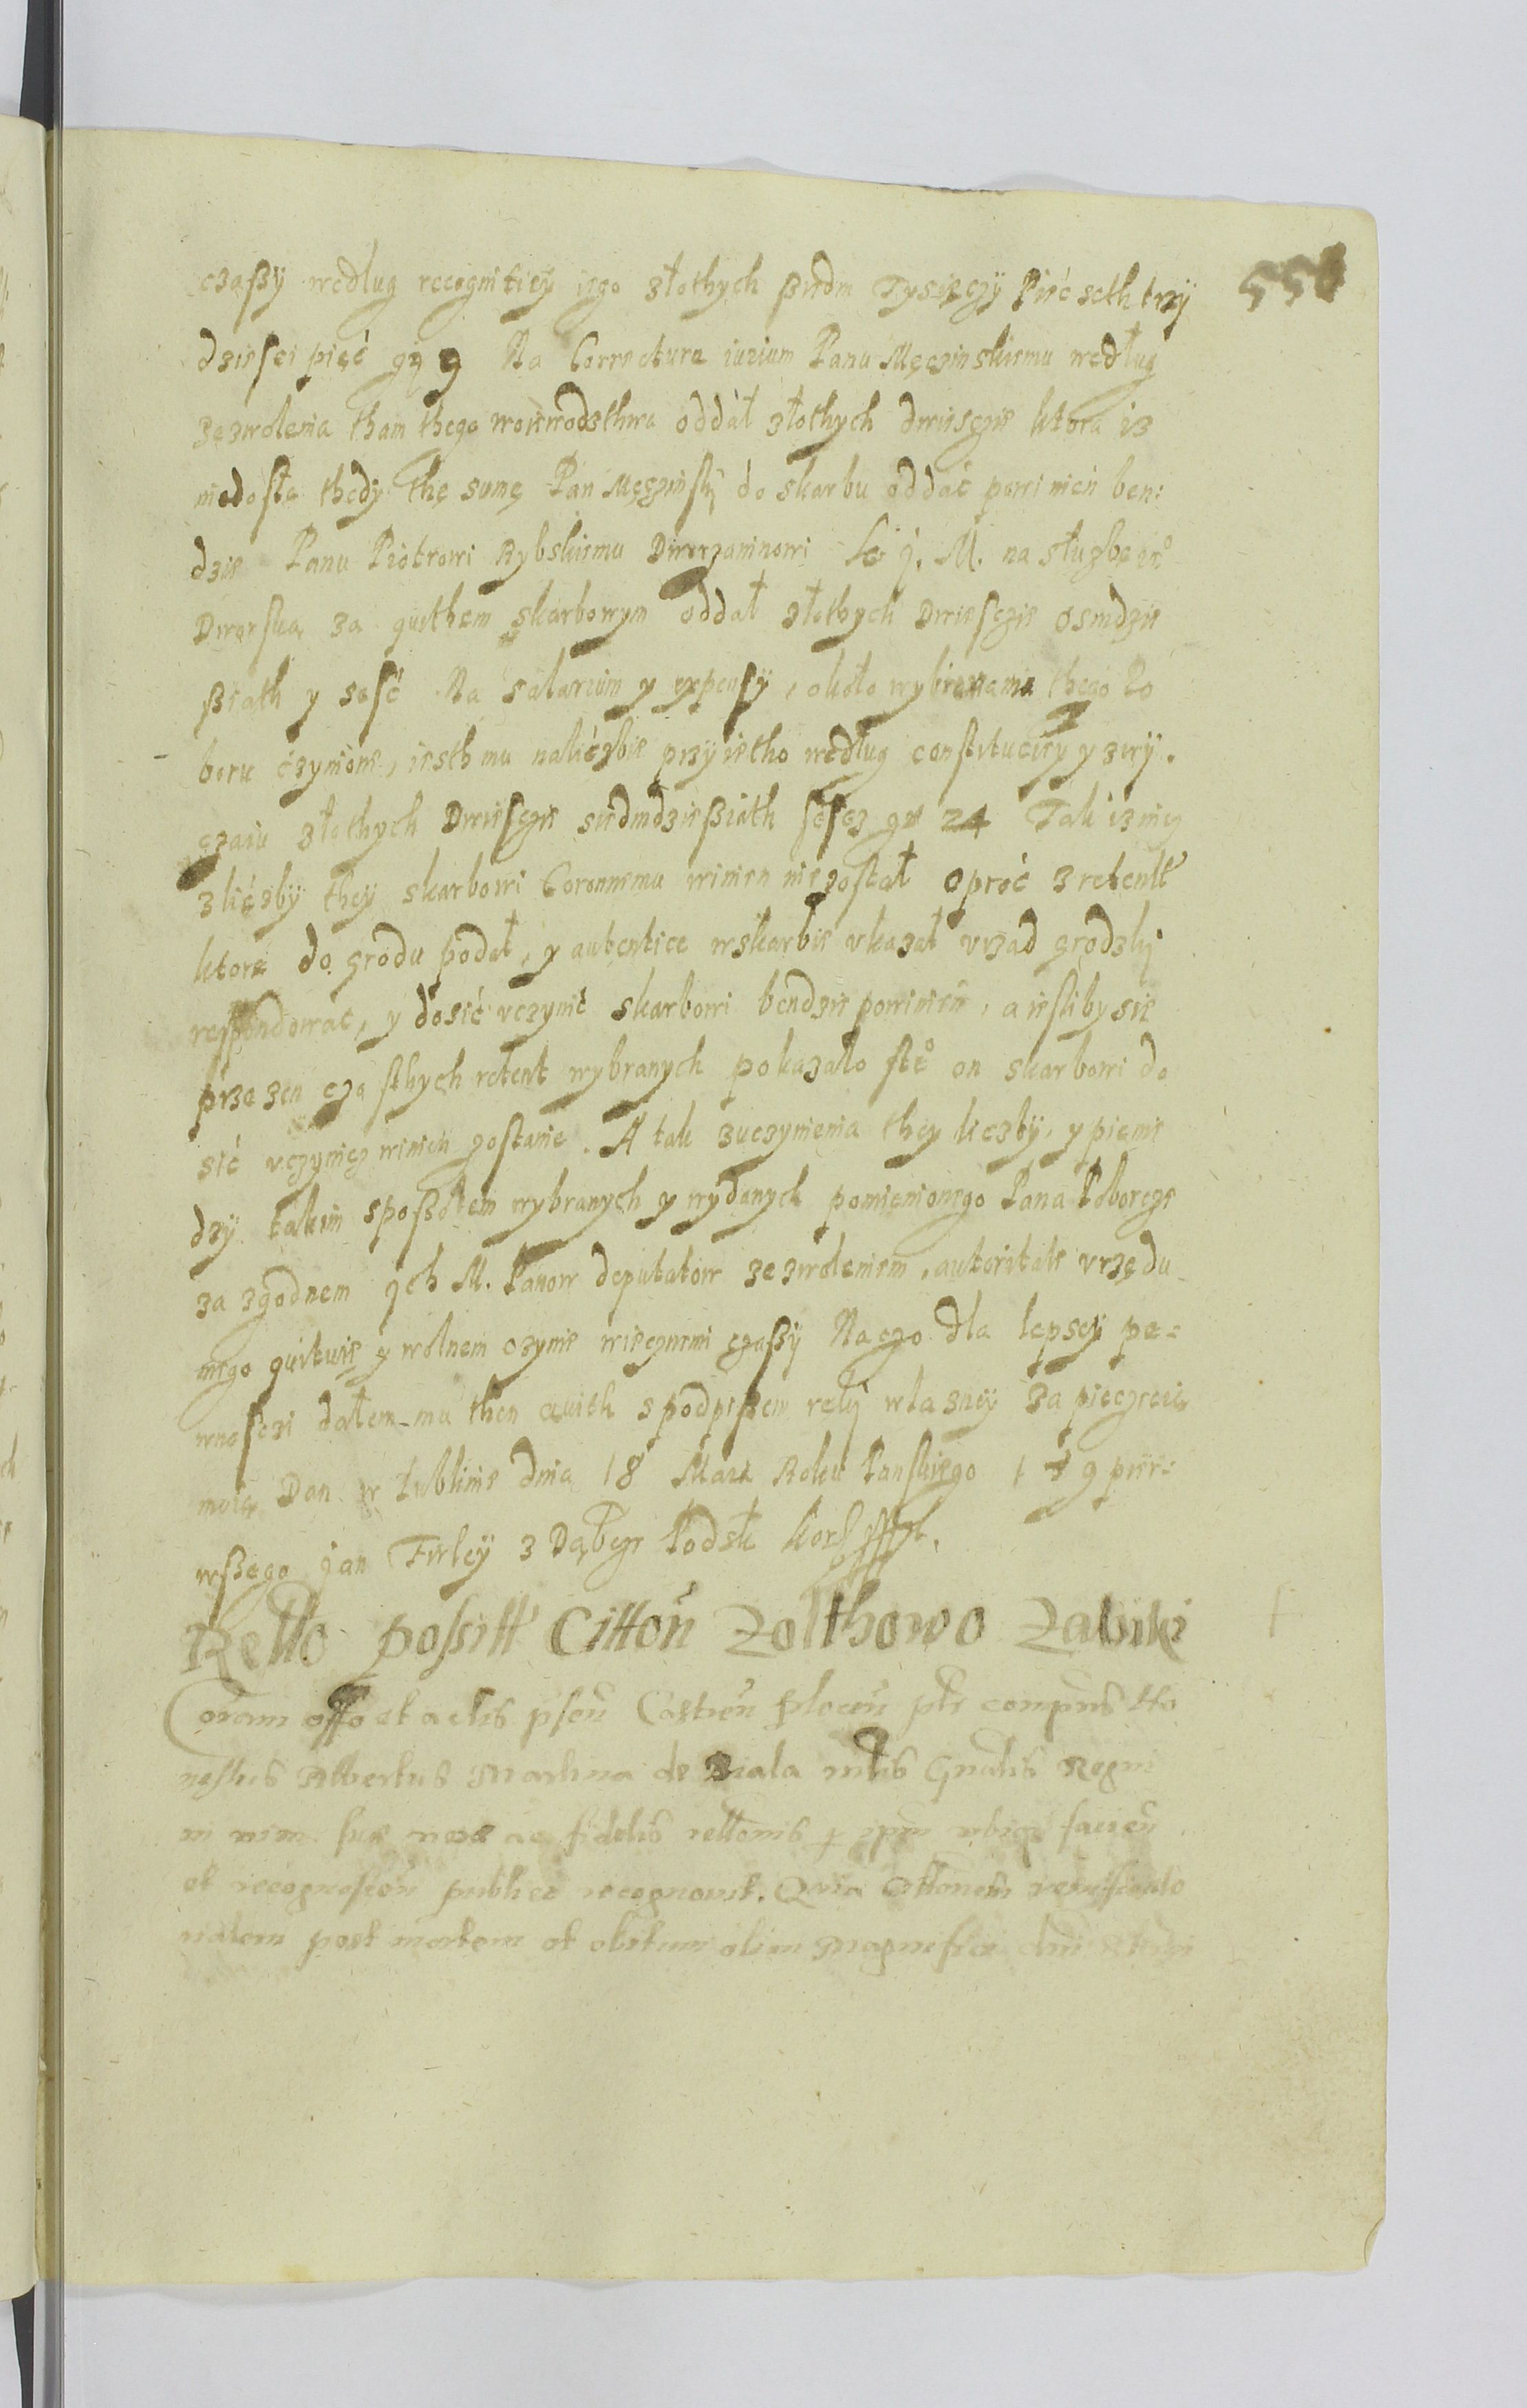 czaßÿ według recognitieÿ iego złothych ßiedm Tysięczÿ Pięć seth trzÿ 558
dziesci pięć gr 9 Na Correcture iurium Panu Męczinskiemu według
zezwolenia tham thego woiewodzthwa oddał złothych dwiesczie ktora iz
niedosła thedÿ thę sumę Pan Męczinskÿ do skarbu oddać powinien ben:
dzie Panu Piotrowi Rybskiemu Dworzaninowi J. M. na służbę
Dworską za quithem skarbowym oddał złothych Dwiesczie osmdzie
ßiath y sesć Na salarium y expensÿ, około wybierania thego Po
boru czynione, iesth mu naliczbie przÿietho według constitucieÿ y zwÿ.
czaiu złothych Dwiesczie siedmdzießiath sescz gr 24 Tak iz niÿ
zliczbÿ theÿ skarbowi Coronnemu winien niezostał oproć zretent
ktore do grodu podał, y autentice wskarbie vkazał vrzad grodzkj
respondowac, y dosić vczynić skarbowi bendzie powinien, a ieslibysie
przezen cza sthych retent wybranych pokazało on skarbowi do
sić vczynicz winien zostanie. A tak zuczynienia theÿ liczbÿ, y pieni
dzÿ takim sposobem wybranych y wydanych pomienionego Pana Poborcze
za zgodnem jch M. Panow deputatow zezwoleniem, autoritate vrzędu
mego quituie y wolnem czynie wiecznemi czaßÿ Naczo dla lepseÿ pe=
wnosczi dałem mu then quith spodpisem rekj własneÿ za pieczęcią
moią Dan w Lublinie dnia 18 Maia Roku Panskiego 9 pier=
wßego jan Firleÿ z Dąbr Podsk
Rello possitt Citton Zolthowo Zabiki
Coram offo et actis pseñ Castreñ Ploceñ compñs Ho
nestus Albertus Martina de Biala mlis Gnalis Regni
in vim sue vere ac fidelis rellonis ipm ubiqz facieñ
et recognosceñ publice recognouit. Quia
post mortem et obitum olim Magnifici dni